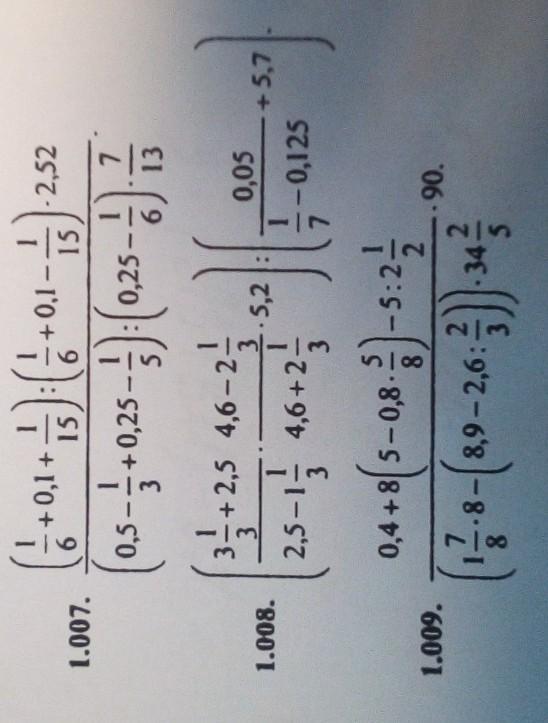 1.007. \frac{\left(\frac{1}{6}+0,1+\frac{1}{15}\right):\left(\frac{1}{6}+0,1-\frac{1}{15}\right)\cdot 2,52}{\left(0,5-\frac{1}{3}+0,25-\frac{1}{5}\right):\left(0,25-\frac{1}{6}\right)\cdot\frac{7}{13}}.
1.008. \left(\frac{3\frac{1}{3}+2,5}{2,5-1\frac{1}{3}}\cdot\frac{4,6-2\frac{1}{3}}{4,6+2\frac{1}{3}}\cdot 5,2\right):\left(\frac{0,05}{\frac{1}{7}-0,125}+5,7\right).
1.009. \frac{0,4+8\left(5-0,8\cdot\frac{5}{8}\right)-5:2\frac{1}{2}}{\left(1\frac{7}{8}\cdot 8-\left(8,9-2,6:\frac{2}{3}\right)\right)\cdot 34\frac{2}{5}}\cdot 90.